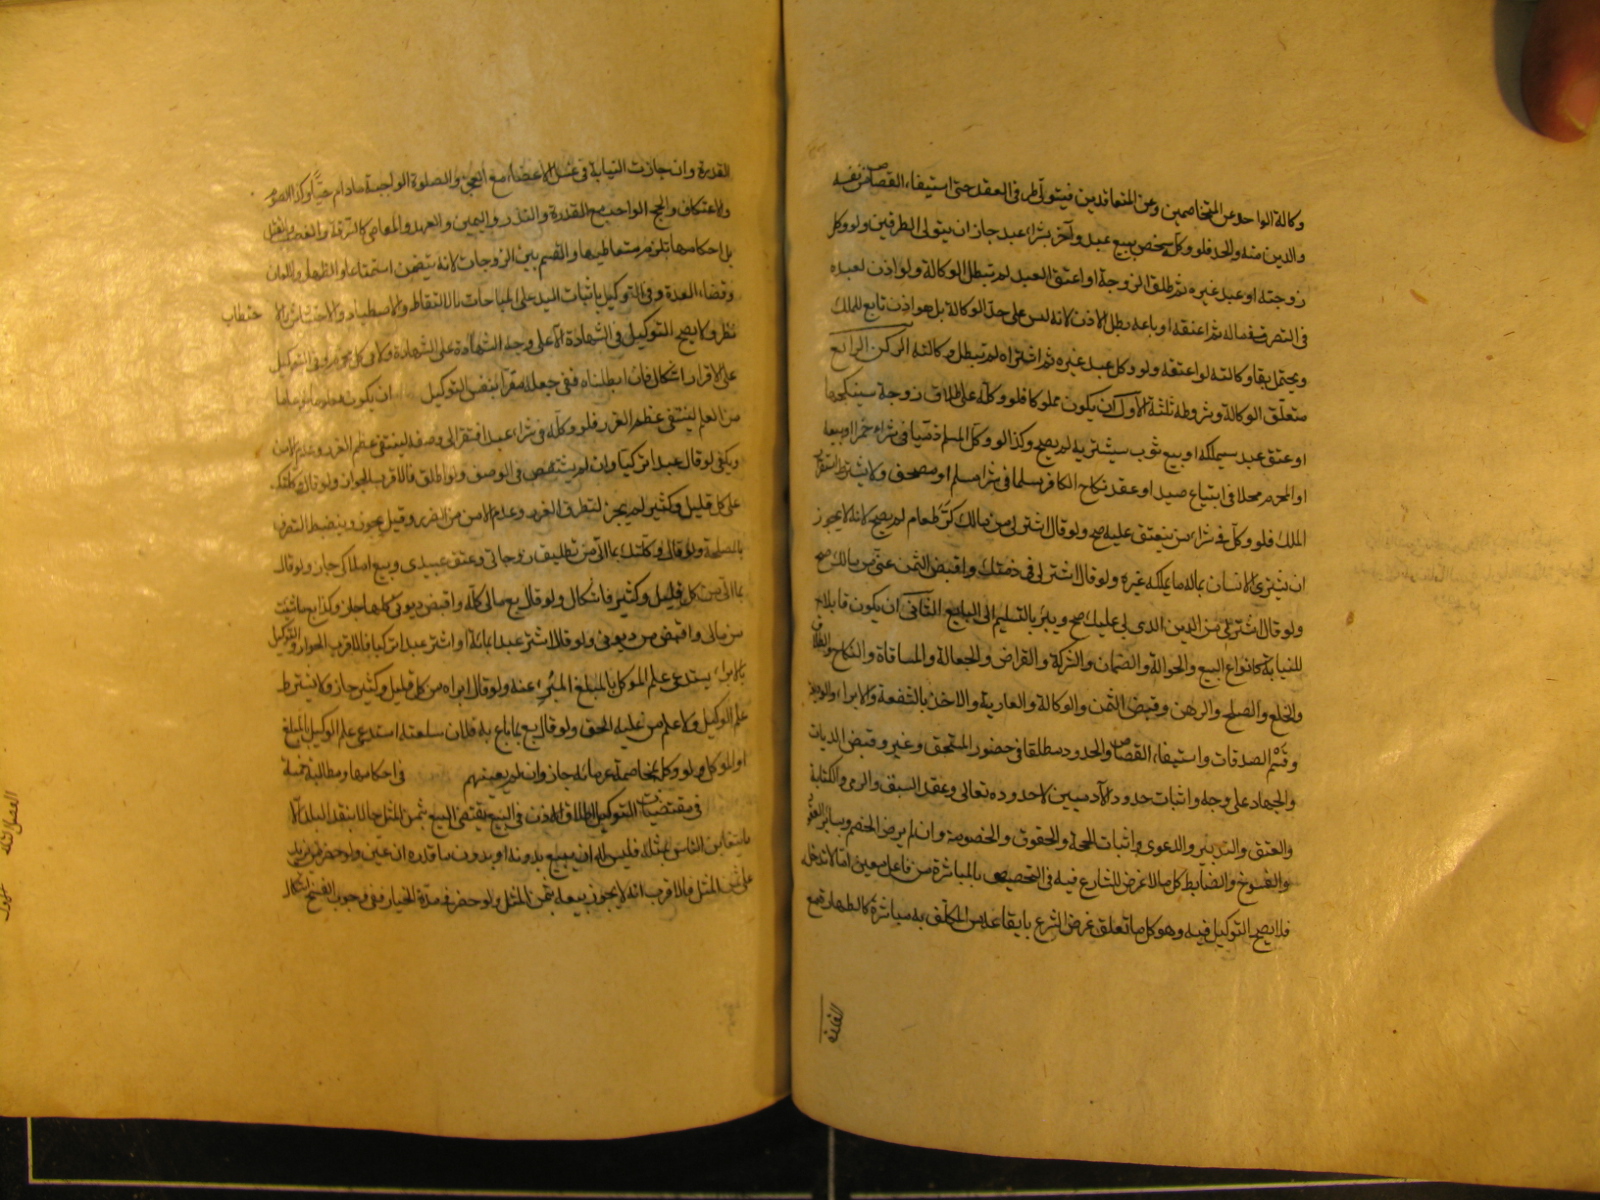 وكالة الواحد عن المتخاصمين وعن المتعاقدين فيتولى طرفى العقد حتى استيفاء القصاص من نفسه
والدين منه والحد فلو وكله شخص ببيع عبد وآخر بشراء عبد جاز ان يتولى الطرفين ولو وكل
زوجته او عبد غيره ثم طلق الزوجة او اعتق العبد لم تبطل الوكالة ولو اذن لعبده
فى التصرف فى ماله ثم اعتقه او باعه بطل الاذن لانه ليس على حد الوكالة بل هو اذن تابع للملك
ويحتمل بقاء وكالته لو اعتقه ولو وكل عبد غيره ثم اشتراه لم تبطل وكالته الركن الرابع
متعلق الوكالة وشروطه ثلثة الاول ان يكون مملوكا فلو وكله على طلاق زوجة سينكحها
او عتق عبد سيملكه او بيع ثوب سيشتريه لم يصح وكذا لو وكل المسلم ذميا فى شراء خمر او بيعه
او المحرم محلا فى ابتياع صيد او عقد نكاح او الكافر مسلما فى شراء مسلم او مصحف ولا يشترط استقرار
الملك فلو وكله فى شراء من ينعتق عليه صح ولو قال اشتر لى من مالك كر طعام لم يصح لانه لا يجوز
ان يشترى الانسان بماله ما يملكه غيره ولو قال اشتر لى فى ذمتك واقبض الثمن عنى من مالك صح
ولو قال اشتر لى من الدين الذى لى عليك صح ويبرء بالتسليم الى البايع الثانى ان يكون قابلا
للنيابة كانواع البيع والحوالة والضمان والشركة والقراض والجعالة والمساقاة والنكاح والطلاق
والخلع والصلح والرهن وقبض الثمن والوكالة والعارية والاخذ بالشفعة والابراء والوديعة
وقسم الصدقات واستيفاء القصاص والحدود مطلقا فى حضور المستحق وغيره وقبض الديات
والجهاد على وجه واثبات حدود الآدميين لا حدوده تعالى وعقد السبق والرمى والكتابة
والعتق والتدبير والدعوى واثبات الحجة والحقوق والخصومة وان لم يرض الخصم وساير العقود
والفسوخ والضابط كل ما لا غرض للشارع فيه فى التخصيص بالمباشرة من فاعل معين اما لا تدخله
فلا يصح التوكيل فيه وهو كل ما تعلق غرض الشرع بايقاعه من المكلف به مباشرة كالطهارة مع
القدرة
القدرة وان جازت النيابة فى غسل الاعضاء مع العجز والصلوة الواجبة ما دام حيا وكذا الصوم
والاعتكاف والحج الواجب مع القدرة والنذر واليمين والعهد والمعاصى كالسرقة والغصب والقتل
بل احكامها تلزم متعاطيها والقسم بين الزوجات لانه يتضمن استمتاعا والظهار واللعان
وقضاء العدة وفى التوكيل باثبات اليد على المباحات كالالتقاط والاصطياد والاحتشاش والا حتطاب
نظر ولا يصح التوكيل فى الشهادة الا على وجه الشهادة على الشهادة ولا فى كل محرم وفى التوكيل
على الاقرار اشكال فان ابطلناه ففى جعله مقرا بنفس التوكيل ان يكون معلوما نوعا ما
من العلم لينتفى عظم الغرر فلو وكله فى شراء عبد افتقر الى وصفه لينتفى عظم الغرر
ويكفى لو قال عبدا تركيا وان لم يستقص فى الوصف ولو اطلق فالاقرب الجواز ولو قال وكلتك
على كل قليل وكثير لم يجز لتطرق الغرر وعدم الامن من الضرر وقيل يجوز وينضبط التصرف
بالمصلحة ولو قال وكلتك بما الى من تطليق زوجاتى وعتق عبيدى وبيع املاكى جاز ولو قال
بما الى من كل قليل وكثير فاشكال ولو قال بع مالى كله واقبض ديونى كلها جاز وكذا بع ما شئت
من مالى واقبض من ديونى ولو قال اشتر عبدا بمائة او اشتر عبدا تركيا فالاقرب الجواز والتوكيل
بالابراء يستدعى علم الموكل بالمبلغ المبرء عنه ولو قال ابراه من كل قليل وكثير جاز ولا يشترط
علم الوكيل ولا علم من عليه الحق ولو قال بع بما باع به فلان سلعته استدعى علم الوكيل بالمبلغ
او الموكل ولو وكله بمخاصمة غرمائه جاز وان لم يعينهم فى احكامها ومطالبه خمسة
فى مقتضيات التوكيل اطلاق الاذن فى البيع يقتضى البيع بثمن المثل حالا بنقد البلد الا
ما يتغابن الناس بمثله فليس له ان يبيع بدونه او بدون ما قدره ان عين ولو حضر من يزيد
على ثمن المثل فالاقرب انه لا يجوز بيعه بثمن المثل ولو حضر فى مدة الخيار ففى وجوب الفسخ اشكال